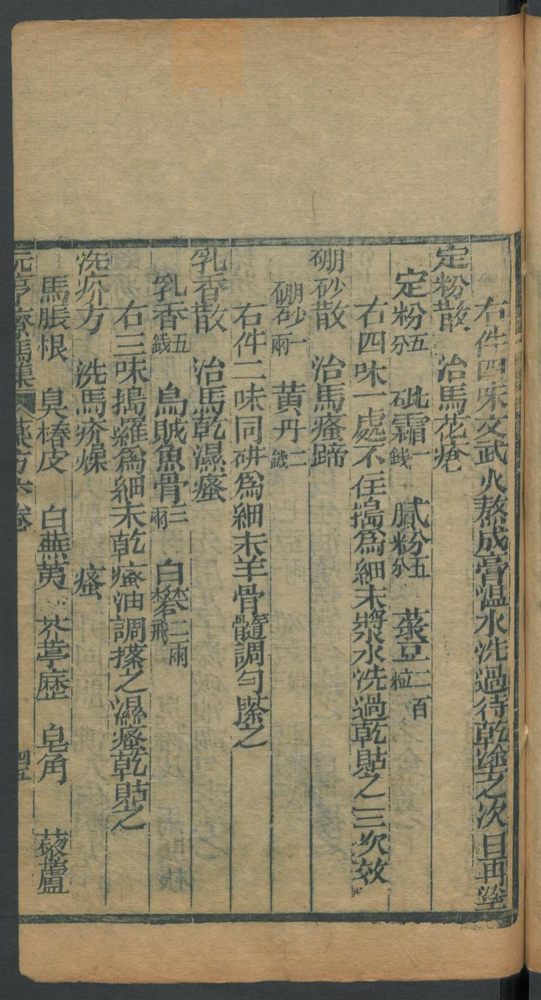 右件四味文武火熬成膏溫水洗過待乾塗之次日再塗
定粉散　治馬花瘡
定粉五分　砒霜一錢　膩粉五分　菉豆二百粒
右四味一處不住搗為細末漿水洗過乾貼之三次效
硼砂散　治馬瘙蹄
硼砂一兩　黃丹二錢
右件二味同研為細末羊骨髓調勻塗之
乳香散　治馬乾濕瘙
乳香五錢　烏賊魚骨三兩　白礬二兩飛
右三味搗羅為細末乾瘙油調搽之濕瘙乾貼之
洗疥方　洗馬疥燥瘙
馬脹根　臭椿皮　白蕪荑　芥葶歷　皂角　藜蘆
元亨療馬集　六卷